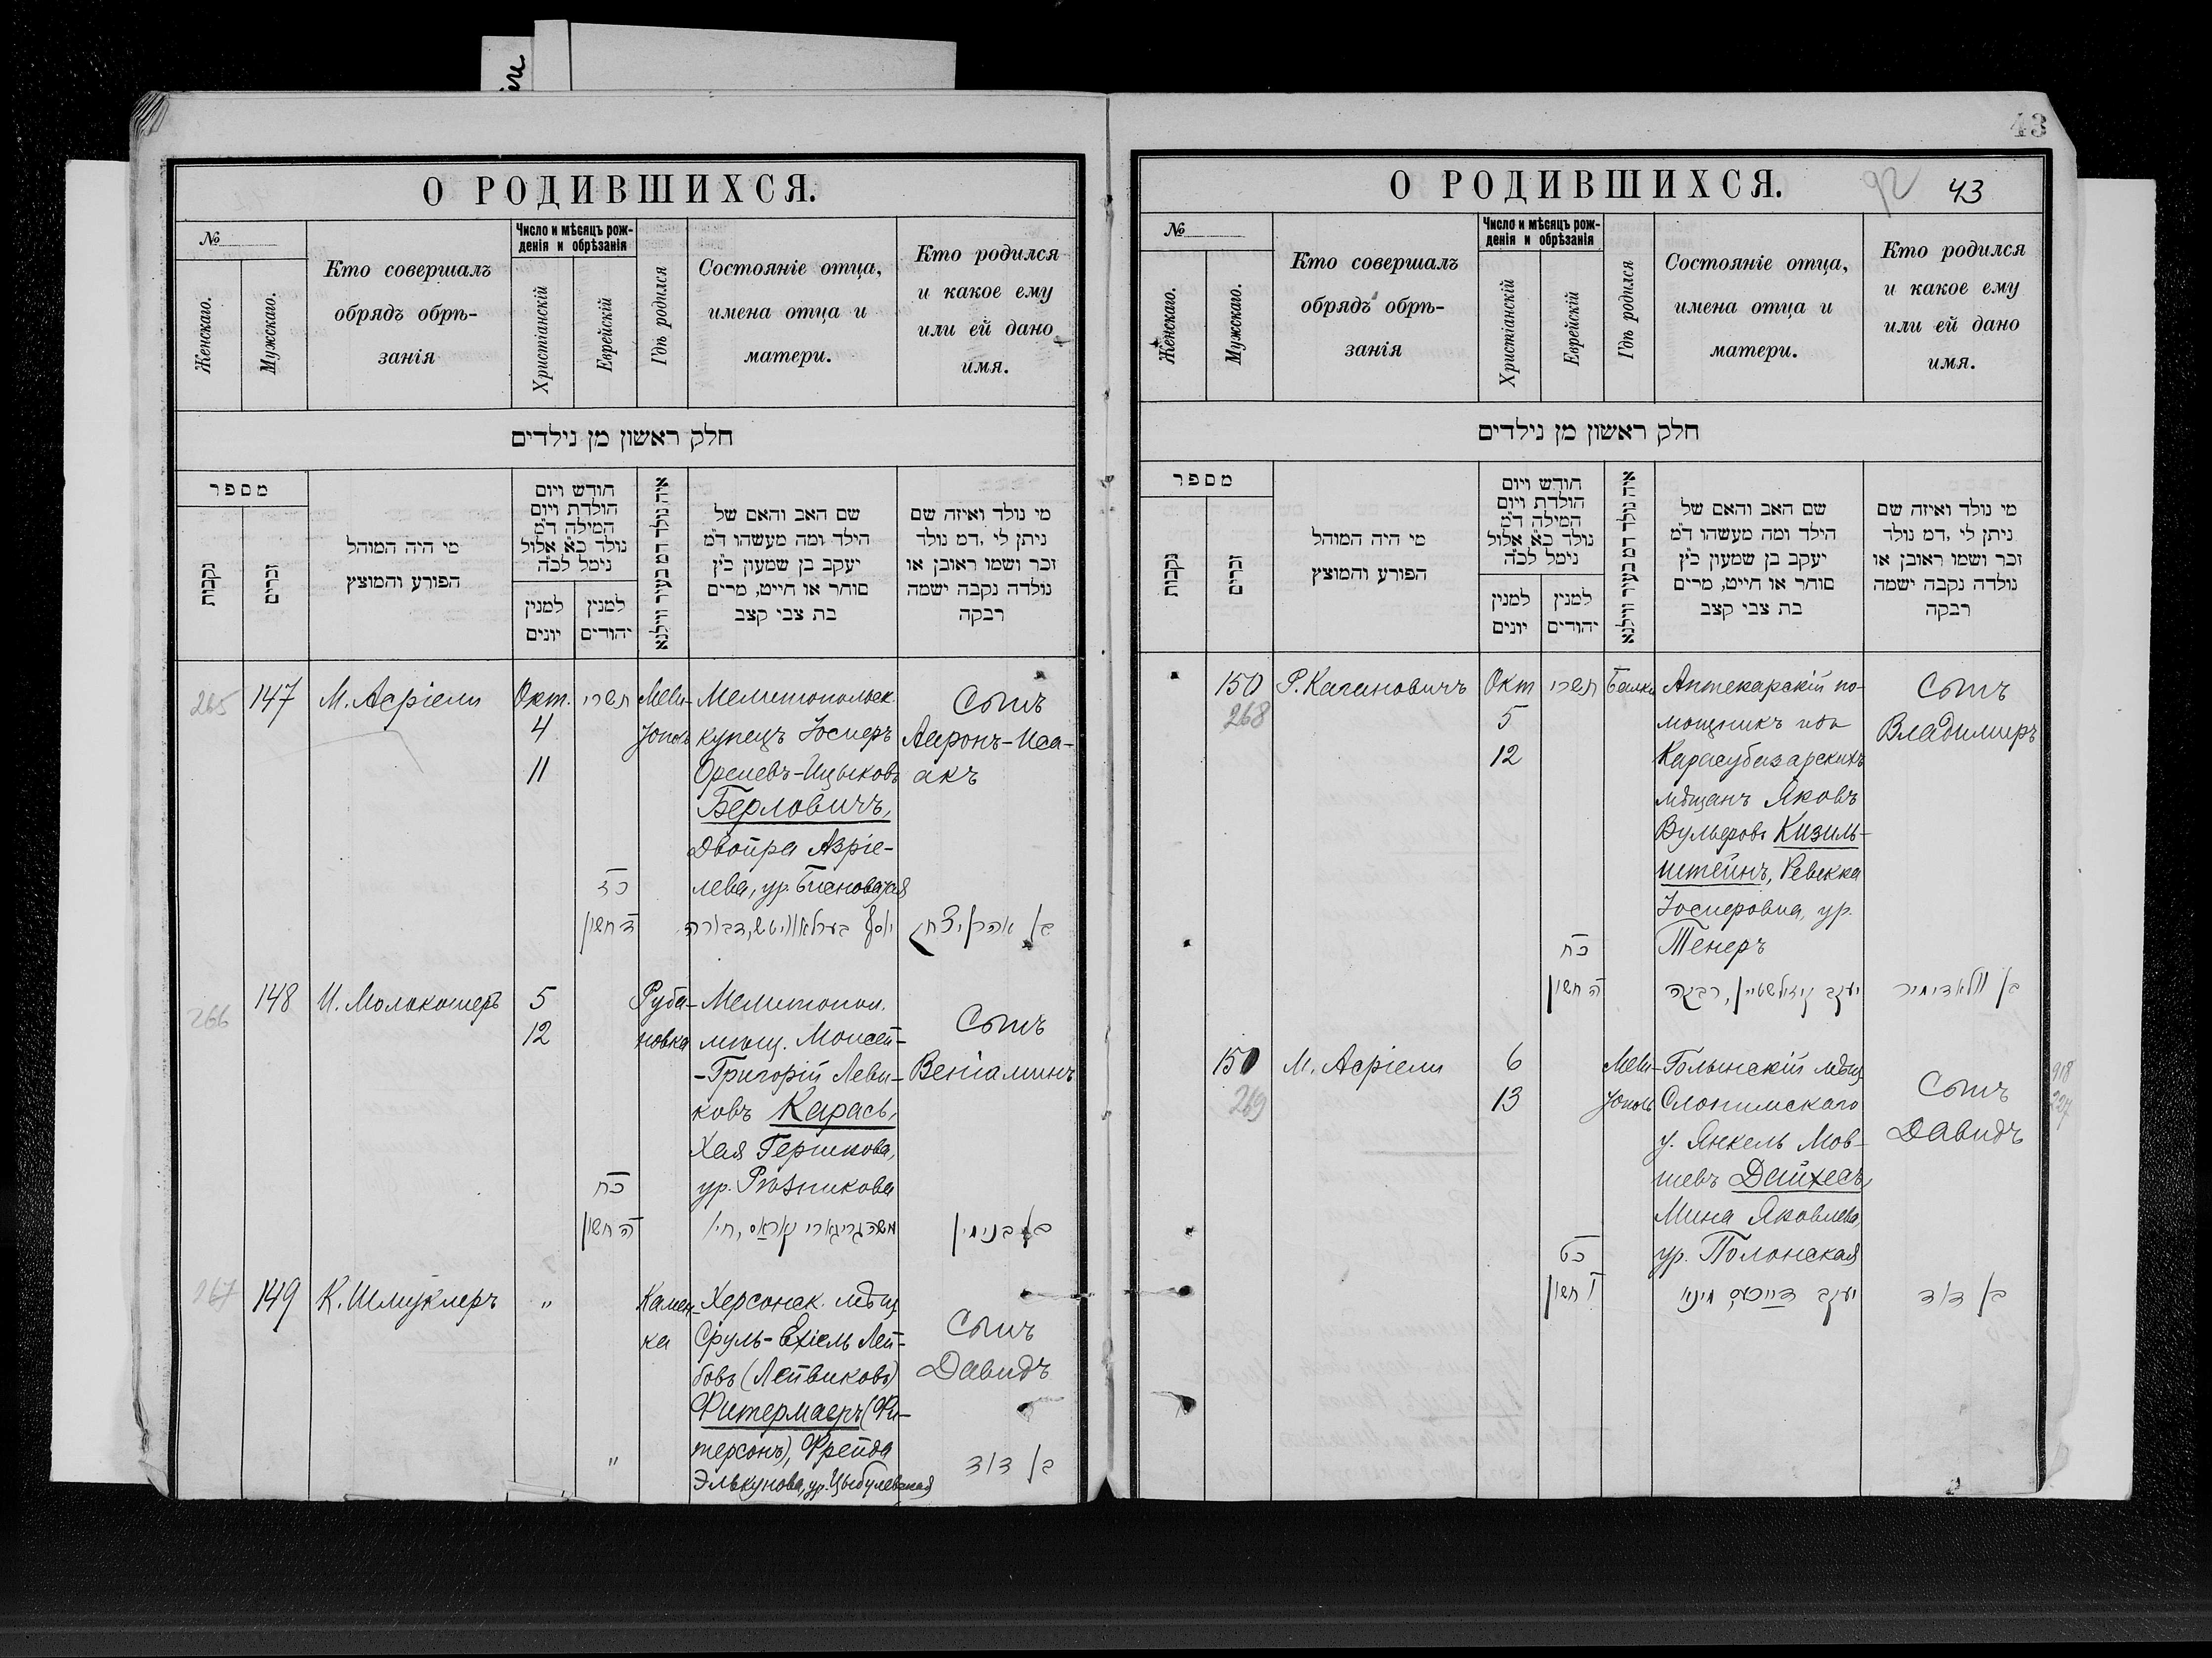 О РОДИВШИХСЯ.
№
Женскаго.
Мужскаго.
Кто совершалъ
обрядъ обрѣ-
занія
Число и мѣсяцъ рож-
денія и обрѣзанія
Христіанскій
Еврейскій
Гдѣ родился
Состояніе отца,
имена отца и
матери.
Кто родился
и какое ему
или ей дано
имя.
חלק ראשון מן נילדים
מספר
נקבות
זכרים
מי היה המוהל
הפורע והמוצץ
חודש ויום
הולדת ויום
המילה ד"מ
נולד כ"א אלול
נימל לכ"ה
למנין
יונים
למנין
יהודים
איה נולד דמ בעיר ווילנא
שם האב והאם של
הילד ומה מעשהו ד"מ
יעקב בן שמעון כ"ץ
סוחר או חייט, מרים
בת צבי קצב
מי נולד ואיזה שם
ניתן לי ,דמ נולד
זכר ושמו ראובן או
נולדה נקבה ישמה
רבקה
265
147
М. Асріели
Окт.
4
11
תשרי
כד
ד חשון
Мели-
тополь
Мелитопольск.
купецъ Іосифъ
Орелевъ-Ицыковъ
Берловичъ,
Двойра Азріе-
лева, ур. Бисноватая
יוסף בערלאוויטש, דבורה
Сынъ
Ааронъ-Иса-
акъ
בן אהרן יצחק
266
148
И. Молокошеръ
5
12
כח
ה חשון
Руба-
новка
Мелитопол.
мѣщ. Моисей-
-Григорій Леви-
ковъ Карась,
Хая Гершкова,
ур. Рѣзникова
משה גריגארי קאראס, חי'
Сынъ
Веніаминъ
בן בנימין
267
149
К. Шмуклеръ
"
"
Камен-
ка
Херсонск. мѣщ
Сруль-Ехіель Лей-
бовъ (Лейвиковъ)
Фитермаеръ (Фи-
терсонъ), Фрейда
Элькунова, ур. Цыбулевская
Сынъ
Давидъ
בן דוד
43
О РОДИВШИХСЯ.
92
43
№
Женскаго.
Мужскаго.
Кто совершалъ
обрядъ обрѣ-
занія
Число и мѣсяцъ рож-
денія и обрѣзанія
Христіанскій
Еврейскій
Гдѣ родился
Состояніе отца,
имена отца и
матери.
Кто родился
и какое ему
или ей дано
имя.
חלק ראשון מן נילדים
מספר
נקבות
זכרים
מי היה המוהל
הפורע והמוצץ
חודש ויום
הולדת ויום
המילה ד"מ
נולד כ"א אלול
נימל לכ"ה
למנין
יונים
למנין
יהודים
איה נולד דמ בעיר ווילנא
שם האב והאם של
הילד ומה מעשהו ד"מ
יעקב בן שמעון כ"ץ
סוחר או חייט, מרים
בת צבי קצב
מי נולד ואיזה שם
ניתן לי ,דמ נולד
זכר ושמו ראובן או
נולדה נקבה ישמה
רבקה
150
268
Р. Кагановичъ
Окт
5
12
תשרי
כח
ה חשון
Балки
Аптекарскій по-
мощникъ изъ
Карасубазарскихъ
мѣщанъ Яковъ
Вульфовъ Кизиль-
штейнъ, Ревекка
Іосифовна, ур.
Тенеръ
יעקב קיזילשטיין, רבקה
Сынъ
Владимиръ
בן וולאדימיר
150
269
М. Асріели
6
13
כט
ו חשון
Мели-
тополь
Голынскій мѣщ
Слонимскаго
у. Янкель Мов-
шевъ Дайхесъ,
Мина Яковлева,
ур. Полонская
יעקב דייכעס, מינא
Сынъ
Давидъ
בן דוד